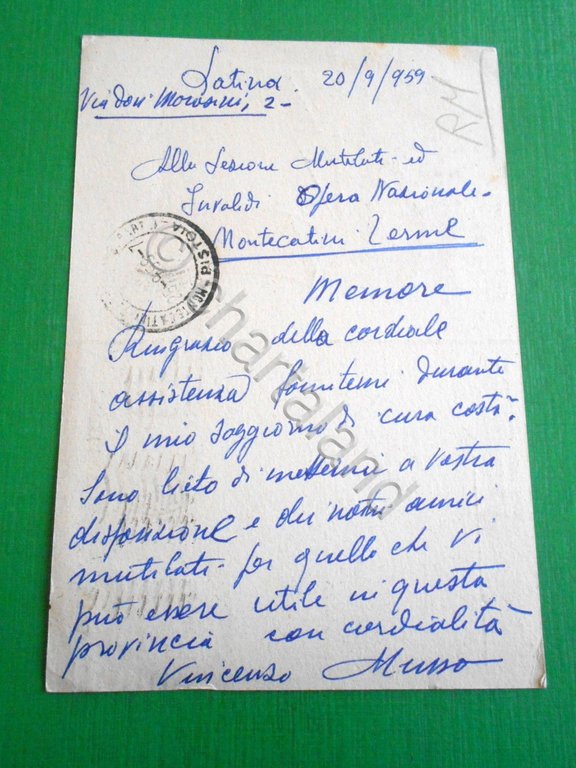 Latina. 20/9/959-
Via Don Morosini, 2-
RM
Alla Sezione Mutilati ed
Invalidi Opera Nazionale-
Montecatini Terme
PISTOIA
MONTECATINI
©chartaland
Memore
Ringrazio della cordiale
assistenza fornitemi durante
il mio soggiorno di cura costà.
Sono lieto di mettermi a vostra
disposizione e dei nostri amici
mutilati per quello che vi
può essere utile in questa
provincia con cordialità
Vincenzo Musso